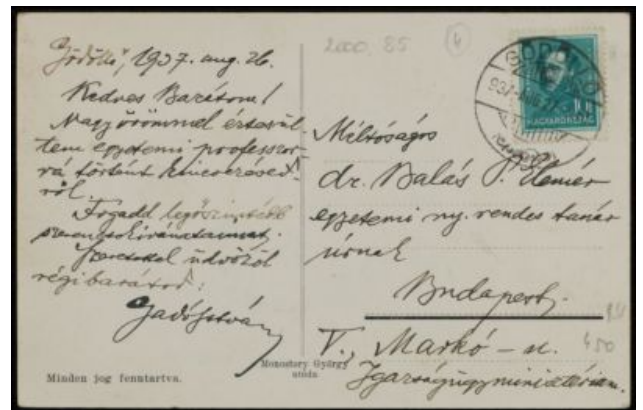 Gödöllő, 1937. aug. 26.
Kedves Barátom!
Nagy örömmel értesül-
tem egyetemi professzor-
rá történt kinevezésed-
ről.
Fogadd legőszintébb
szerencsekívánataimat.
Szeretettel üdvözöl
régi barátod:
Gadó István
Minden jog fenntartva.
Monostory György
2000. 85
4
MAGYARORSZÁG
10
Méltóságos
dr. Balás P. Elemér
egyetemi ny. rendes tanár
úrnak
Budapest.
V., Markó-u.
Igazságügyminisztérium.
450